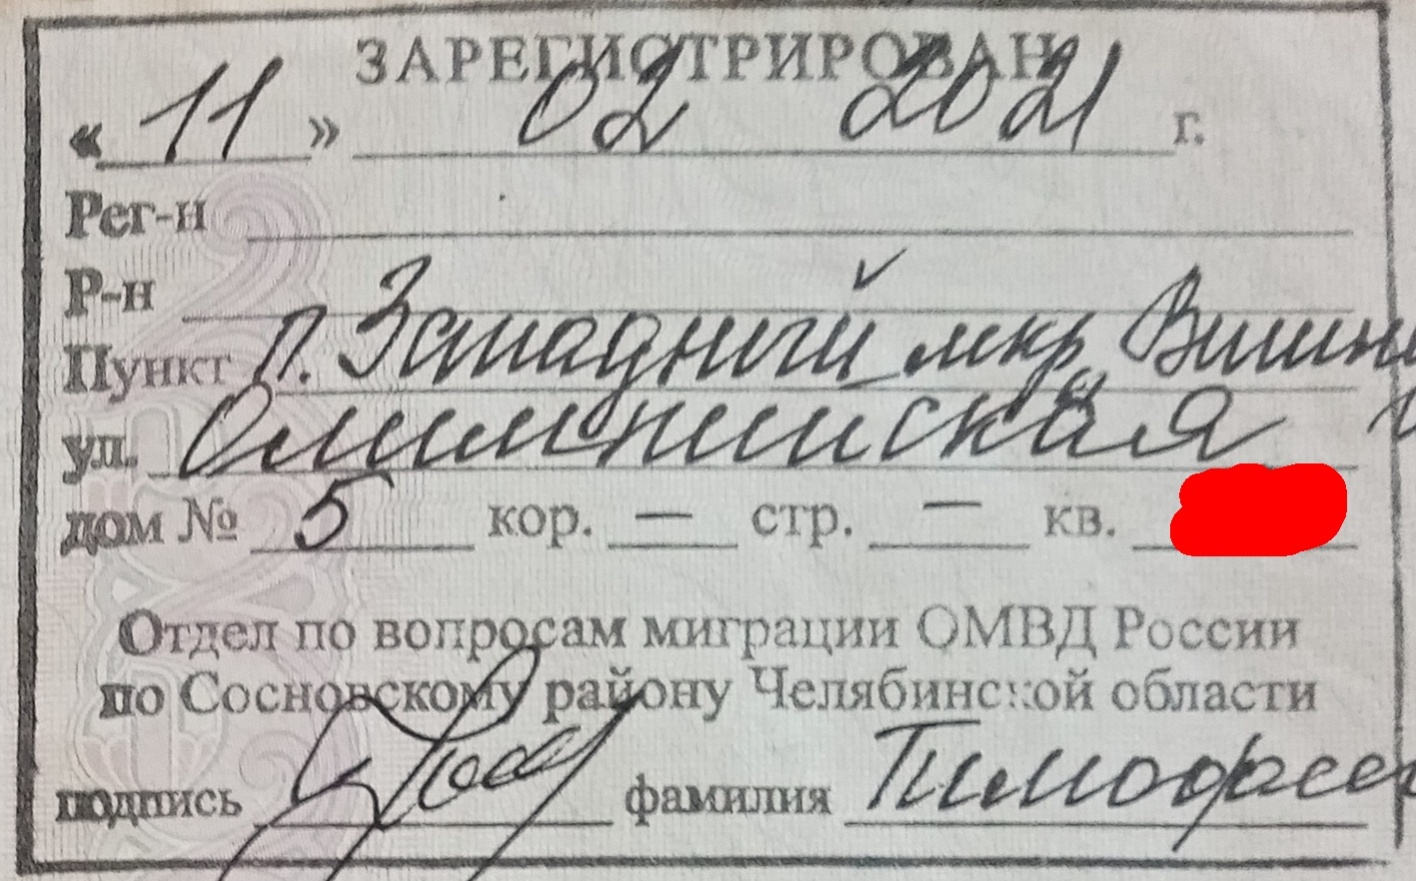 ЗАРЕГИСТРИРОВАН
« 11 » 02 2021 г.
Рег-н
Р-н
Пункт п. Западный мкр. Вишн
ул. Олимпийская
дом № 5 кор. — стр. — кв.
Отдел по вопросам миграции ОМВД России
по Сосновскому району Челябинской области
подпись фамилия Тимофее